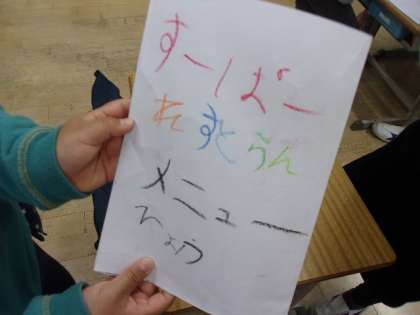 すーぱー
れすとらん
メニュー
ひょう